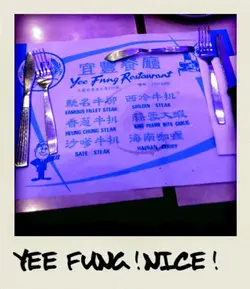 宜豐餐廳
Yee Fung Restaurant
馳名牛柳
FAMOUS FILLET STEAK
西冷牛扒
SIRLOIN STEAK
香葱牛扒
HEUNG CHUNG STEAK
蒜蓉大蝦
KING PRAWN WITH GARLIC
沙嗲牛扒
SATE STEAK
海南咖喱
HAINAN CURRY
YEE FUNG! NICE!